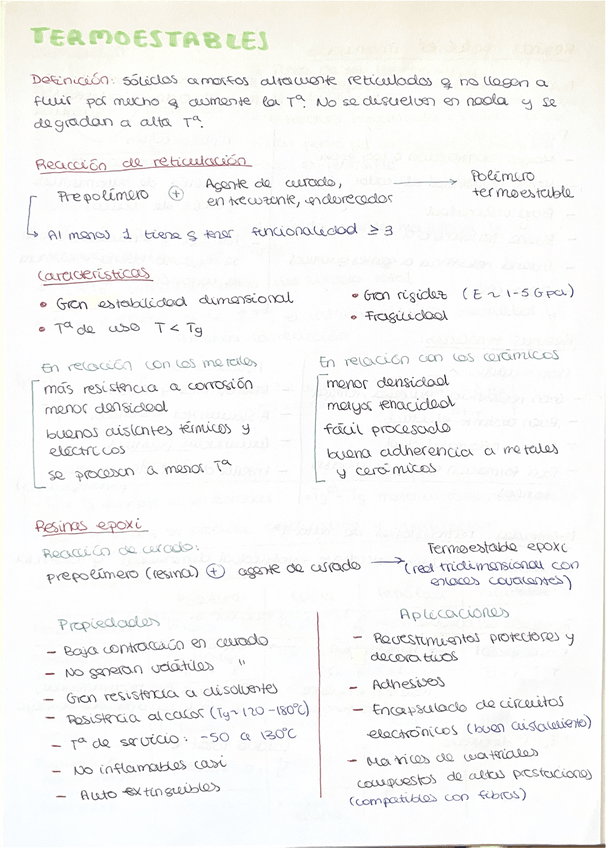 TERMOESTABLES
Definición: sólidos amorfos altamente reticulados q no llegan a
fluir por mucho q aumente la Tª. No se disuelven en nada y se
degradan a alta Tª.
Reacción de reticulación
Prepolímero + Agente de curado, → Polímero
entrecruzante, enderecedor termoestable
↳ Al menos 1 tiene q tener funcionalidad ≥ 3
Características
• Gran estabilidad dimensional
• Tª de uso T < Tg
• Gran rigidez (E ~ 1-5 Gpa)
• Fragilidad
En relación con los metales
más resistencia a corrosión
menor densidad
buenos aislantes térmicos y
eléctricos
se procesan a menor Tª
En relación con los cerámicos
menor densidad
mayor tenacidad
fácil procesado
buena adherencia a metales
y cerámicos
Resinas epoxi
Reacción de curado:
prepolímero (resina) + agente de curado → Termoestable epoxi
(red tridimensional con
enlaces covalentes)
Propiedades
- Baja contracción en curado
- No generan volátiles "
- Gran resistencia a disolventes
- Resistencia al calor (Tg~120-180ºC)
- Tª de servicio: -50 a 130ºC
- No inflamables casi
- Auto extinguibles
Aplicaciones
- Revestimientos protectores y
decorativos
- Adhesivos
- Encapsulado de circuitos
electrónicos (buen aislamiento)
- Matrices de materiales
compuestos de altas prestaciones
(compatibles con fibras)